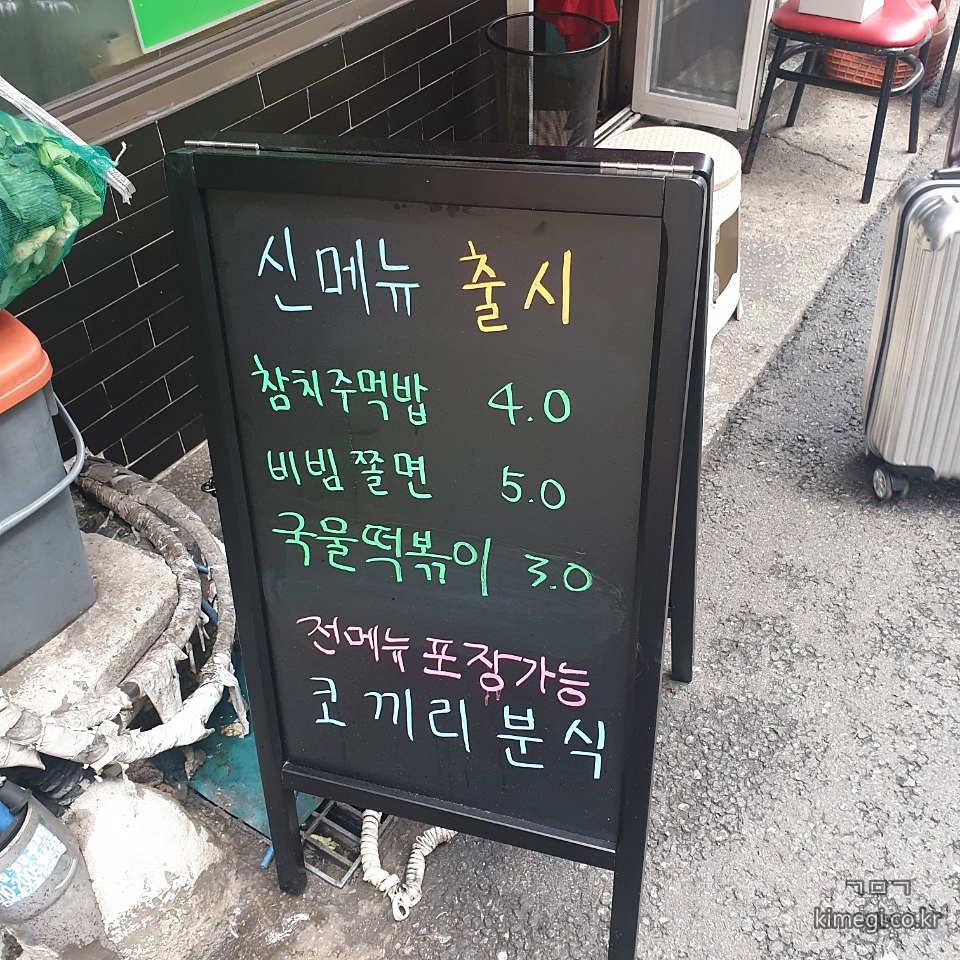 신메뉴 출시
참치주먹밥 4.0
비빔쫄면 5.0
국물떡볶이 3.0
전메뉴 포장가능
코끼리분식
ㄱㅁㄱ
kimegi.co.kr